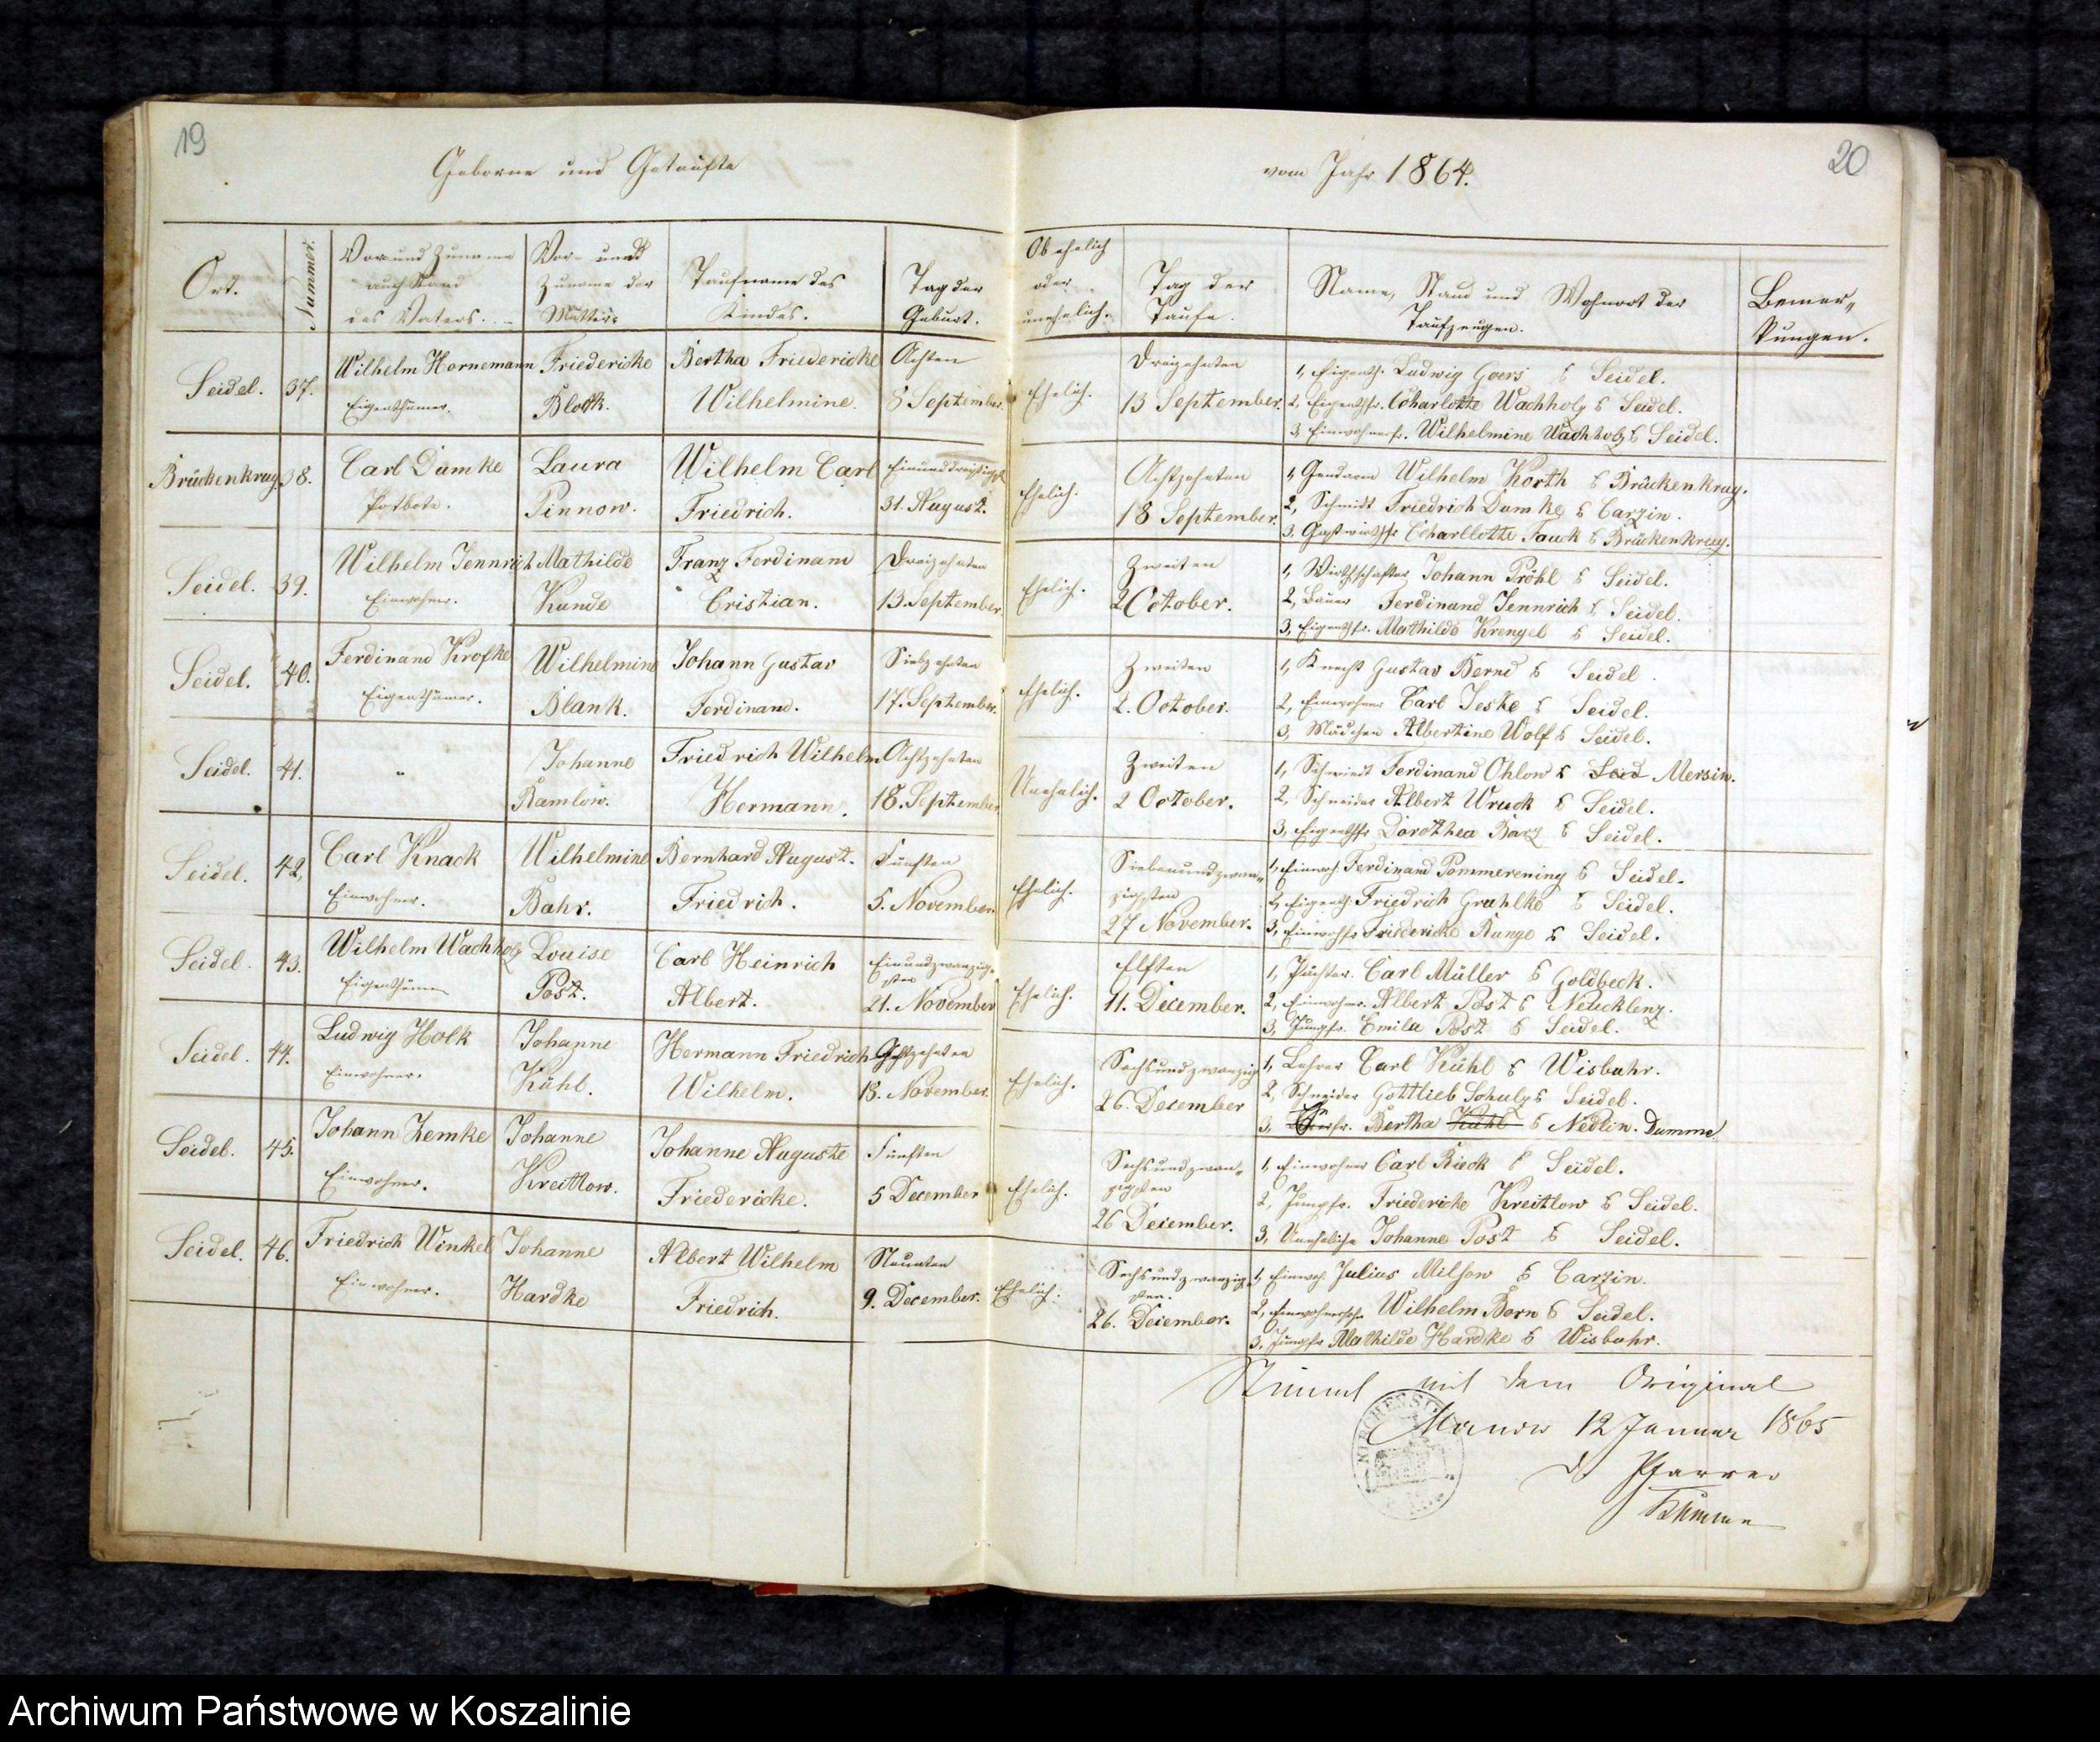 19
Geborne und Getaufte
Ort.
Nummer.
Vor und Zuname
auch Stand
des Vaters.
Vor- und
Zuname der
Mutter.
Taufname des
Kindes.
Tag der
Geburt.
Seidel.
37.
Wilhelm Hornemann
Eigenthümer.
Friedericke
Block.
Bertha Friedericke
Wilhelmine
Achten
8 September.
Brückenkrug.
38.
Carl Dumke
Postbote.
Laura
Pinnow.
Wilhelm Carl
Friedrich.
Einunddreißigst
31. August.
Seidel.
39.
Wilhelm Jennrich
Einwohner.
Mathilde
Kunde
Franz Ferdinand
Cristian.
Dreizehnten
13. September
Seidel.
40.
Ferdinand
Eigenthümer.
Wilhelmine
Blank.
Johann Gustav
Ferdinand.
Siebzehnten
17. September.
Seidel.
41.
"
Johanne
Ramlow.
Friedrich Wilhelm
Hermann.
Achtzehnten
18. September.
Seidel.
42,
Carl Knack
Einwohner.
Wilhelmine
Bahr.
Bernhard August.
Friedrich.
Fünften
5. November.
Seidel.
43.
Wilhelm Wachholz
Eigenthümer
Louise
Post.
Carl Heinrich
Albert.
Einundzwanzig-
sten
21. November
Seidel.
44.
Ludwig Holk
Einwohner.
Johanne
Kühl.
Hermann Friedrich
Wilhelm.
Achtzehnten
18. November.
Seidel.
45.
Johann Zemke
Einwohner.
Johanne
Kreitlow.
Johanne Auguste
Friedericke.
Fünften
5 December
Seidel.
46.
Friedrich Winkel
Einwohner.
Johanne
Hardke
Albert Wilhelm
Friedrich.
Neunten
9. December.
20
vom Jahr 1864.
Ob ehelich
oder
unehelich.
Tag der
Taufe.
Name, Stand und Wohnort der
Taufzeugen.
Bemer-
kungen.
Ehelich.
Dreizehnten
13 September.
1, Eigenth. Ludwig Goers Seidel.
2, Eigenthfr. Charlotte Wachholz Seidel.
3, Einwohnerfr. Wilhelmine Wachholz Seidel.
Ehelich.
Achtzehnten
18 September.
1, Gendarm Wilhelm Korth Brückenkrug.
2, Schmidt Friedrich Dumke Carzin.
3, Gastwirthfr Charllotte Fauck Brückenkrug.
Ehelich.
Zweiten
2 October.
1, Wirthschafter Johann Pröhl Seidel.
2, Bauer Ferdinand Jennrich Seidel.
3, Eigenthfr. Mathilde Krengel Seidel.
Ehelich.
Zweiten
2. October.
1, Knecht Gustav Bernd Seidel.
2, Einwohner Carl Jeske Seidel.
3, Mädchen Albertine Wolf Seidel.
Unehelich.
Zweiten
2 October.
1, Schmidt Ferdinand Ohlow Seid Mersin.
2, Schneider Albert Wruck Seidel.
3, Eigenthfr Dorothea Barz Seidel.
Ehelich.
Siebenundzwan-
zigsten
27 November.
1, Einwoh. Ferdinand Pommerening Seidel.
2, Eigenth. Friedrich Grahlke Seidel.
3, Einwohfr Friedericke Runge Seidel.
Ehelich.
Elften
11. December.
1, Pächter. Carl Müller Goldbeck.
2, Einwohner. Albert Post Neucklenz.
3, Jungfr. Emilie Post Seidel.
Ehelich.
Sechsundzwanzig
26. December
1, Lehrer Carl Kühl Wisbuhr.
2, Schneider Gottlieb Schulz Seidel.
3, Bertha Kühl Nedlin. Dumme.
Ehelich.
Sechsundzwan-
zigsten
26 December.
1, Einwohner Carl Rieck Seidel.
2, Jungfr. Friedericke Kreitlow Seidel.
3, Uneheliche Johanne Post Seidel.
Ehelich.
Sechsundzwanzig-
sten.
26. December.
1, Einwoh. Julius Carzin.
2, Wilhelm Born Seidel.
3, Jungfr Mathilde Hardke Wisbuhr.
Stimmt mit dem Original
Manow 12 Januar 1865
D. Pfarrer
Archiwum Państwowe w Koszalinie